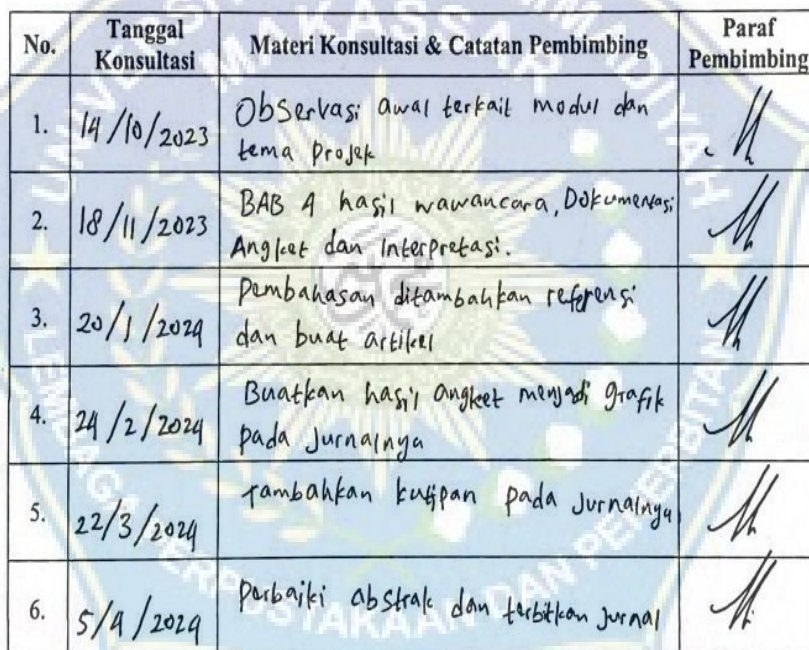 No.
Tanggal
Konsultasi
Materi Konsultasi & Catatan Pembimbing
Paraf
Pembimbing
1.
14/10/2023
Observasi awal terkait modul dan
tema projek
2.
18/11/2023
BAB 4 hasil wawancara, Dokumentasi
Angket dan Interpretasi.
3.
20/1/2024
Pembahasan ditambahkan referensi
dan buat artikel
4.
24/2/2024
Buatkan hasil angket menjadi grafik
pada Jurnalnya
5.
22/3/2024
Tambahkan kutipan pada Jurnalnya
6.
5/4/2024
Perbaiki abstrak dan terbitkan Jurnal
MAKASSAR
LEMBAGA PERPUSTAKAAN DAN PENERBITAN